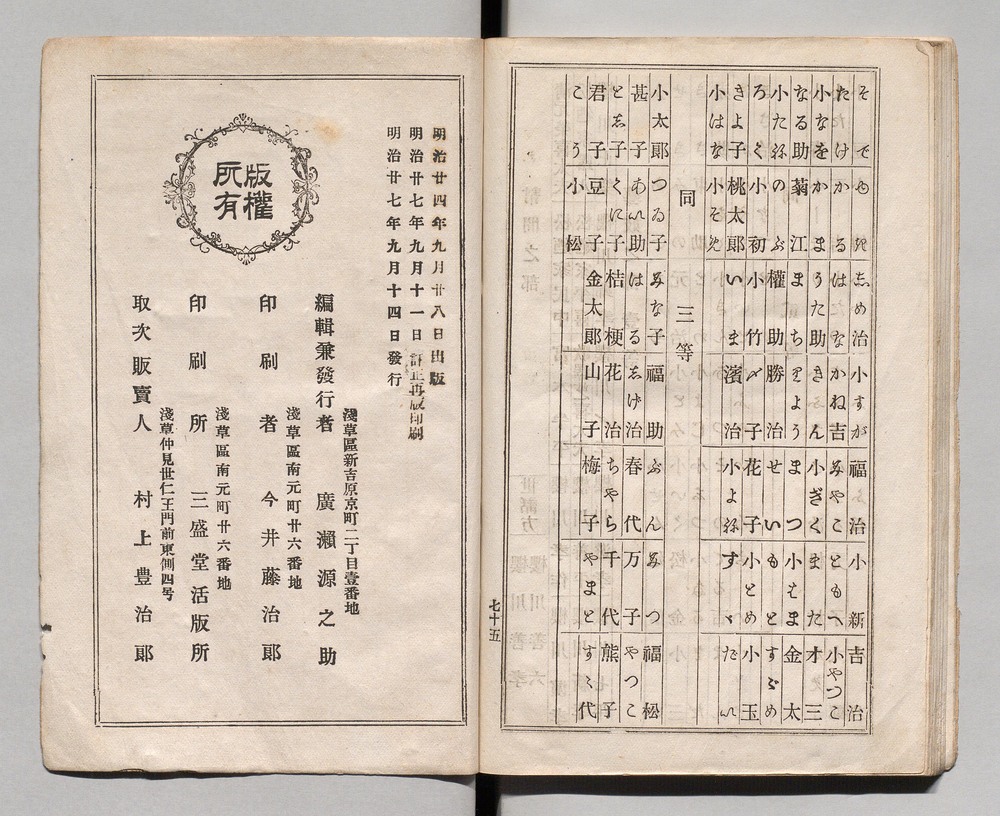 そで 志め治 小すが 福治 小新 吉治
たけ かる はな かね吉 みやこ ともへ 小やつこ
小なを かま うた助 きん 小ぎく また 才三
なる助 菊江 まち りよう まつ 小はま 金太
小たね のぶ 權助 勝治 せい もと すゞめ
ろく 小初 小竹 〆子 花子 小とめ 小玉
きよ子 桃太郎 いま 濱治 小よね すゞ だい
小はな 小その
同 三等
小太郎 つる子 みな子 福助 ぶん みつ 福松
甚子 あい助 はる 志げ治 春代 万子 やつこ
と志子 くに子 桔梗 花治 ちやら 千代 熊子
君子 豆子 金太郎 山子 梅子 やまと すゞ代
こう 小松
七十五
明治廿四年九月廿八日出版
明治廿七年九月十一日訂正再版印刷
明治廿七年九月十四日發行
版權
所有
淺草區新吉原京町二丁目壹番地
編輯兼發行者 廣瀨源之助
淺草區南元町廿六番地
印刷者 今井藤治郎
淺草區南元町廿六番地
印刷所 三盛堂活版所
淺草仲見世仁王門前東側四号
取次販賣人 村上豊治郎